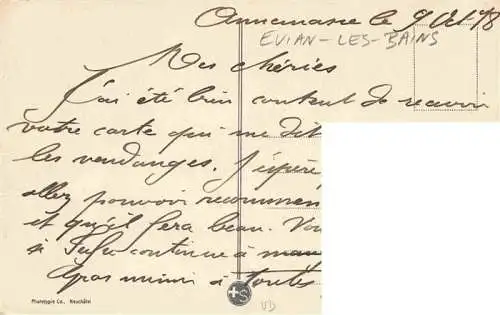 Annemasse le 9 Oct 18
EVIAN-LES-BAINS
Mes chéries
J'ai été bien content de recevoir
votre carte qui me dit
les vendanges. J'espère
allez pouvoir recommen
et qu'il fera beau. Vo
si continue à
Gros mimi à toutes
Phototypie Co., Neuchâtel
+S
VD